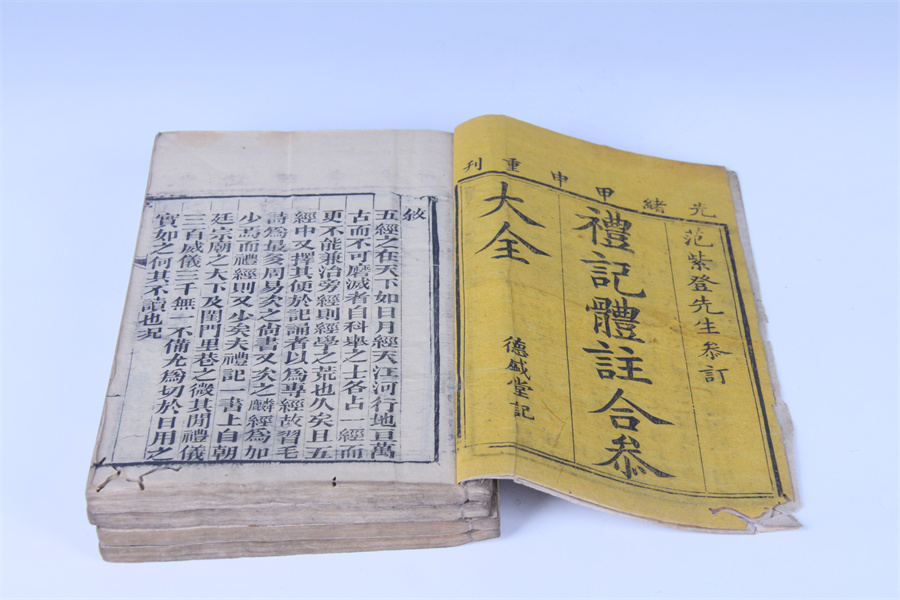 光緒甲申重刊
范紫登先生叅訂
禮記體註合叅
大全
德盛堂記
敘
五經之在天下如日月經天江河行地亘萬
古而不可磨滅者自科舉之士各占一經而
更不能兼治旁經則經學之荒也久矣且五
經中又擇其便於記誦者以爲專經故習毛
詩爲最多周易次之尚書又次之麟經爲加
少焉而禮經則又少矣夫禮記一書上自朝
廷宗廟之大下及閨門里巷之微其閒禮儀
三百威儀三千無一不備尤爲切於日用之
實如之何其不讀也况